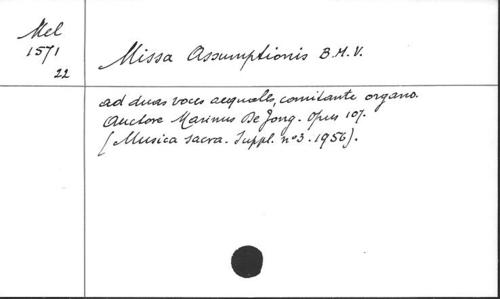 Mel
1571
22
Missa Assumptionis B.M.V.
ad duas voces aequales, comitante organo.
Auctore Marinus De Jong. Opus 107.
(Musica sacra. Suppl. n°3. 1956).